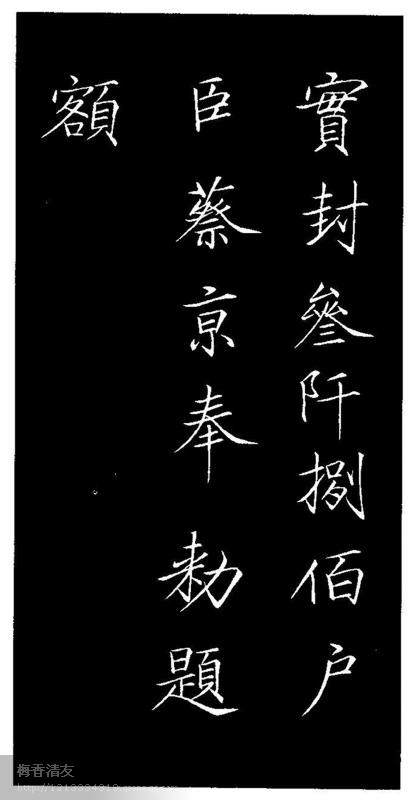 實封參阡捌佰户
臣蔡京奉敕題
額
梅香清友